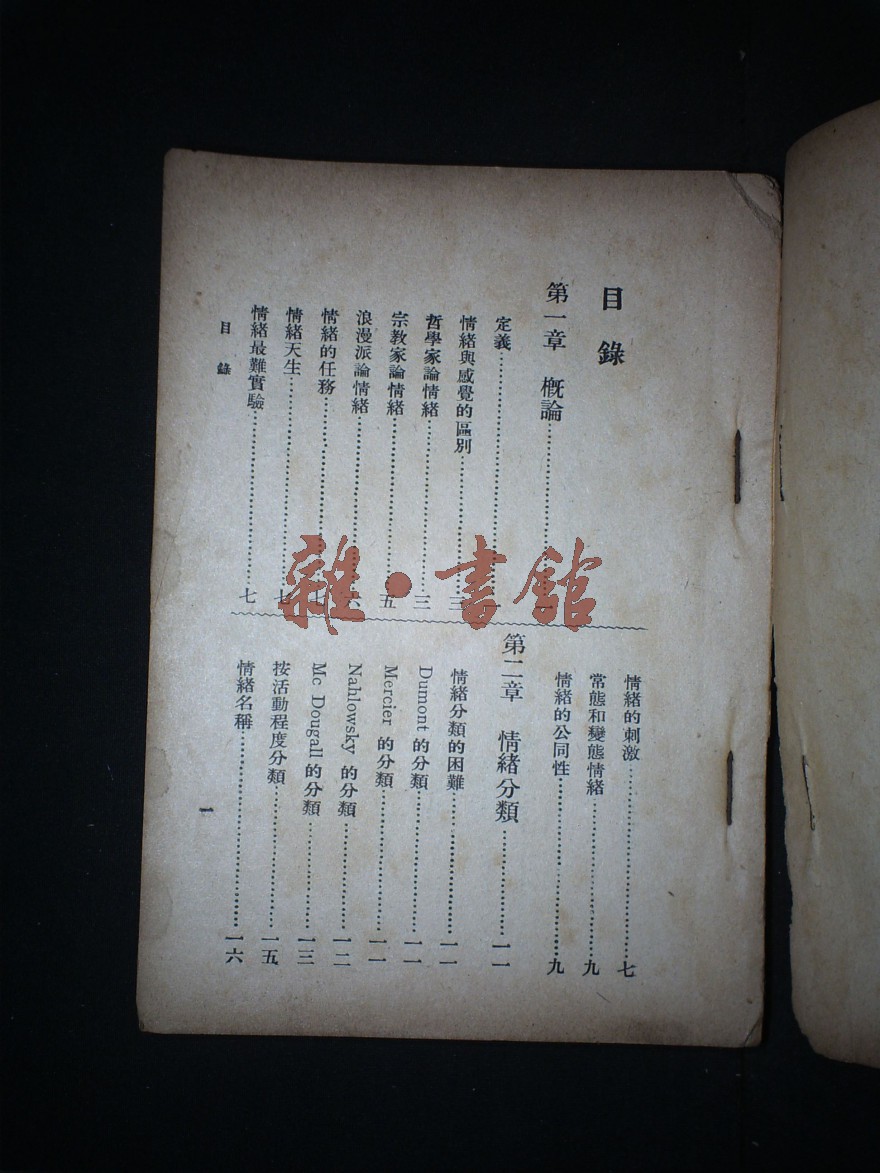 目錄
第一章 概論……一
定義……一
情緒與感覺的區別……三
哲學家論情緒……三
宗教家論情緒……五
浪漫派論情緒……六
情緒的任務……七
情緒天生……七
情緒最難實驗……七
情緒的刺激……七
常態和變態情緒……九
情緒的公同性……九
第二章 情緒分類……一一
情緒分類的困難……一一
Dumont 的分類……一一
Mercier 的分類……一一
Nahlowsky 的分類……一二
Mc Dougall 的分類……一三
按活動程度分類……一五
情緒名稱……一六
目錄
一
雜·書館